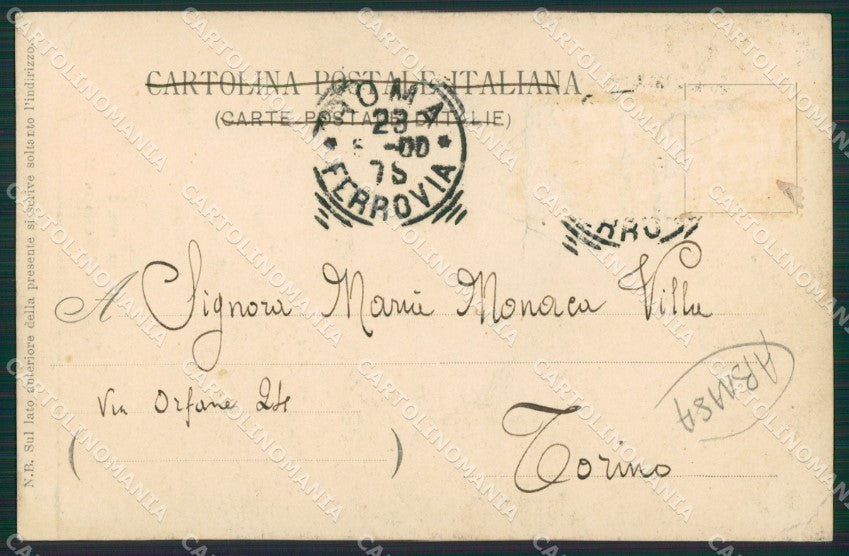 CARTOLINA POSTALE ITALIANA
(CARTE POSTALE D'ITALIE)
ROMA
23
5 -00
7S
FERROVIA
RRO
A Signora Maria Monaca Villa
Via Orfane 24
( )
Torino
ABM87
N.B. Sul lato anteriore della presente si scrive soltanto l'indirizzo.
CARTOLINOMANIA